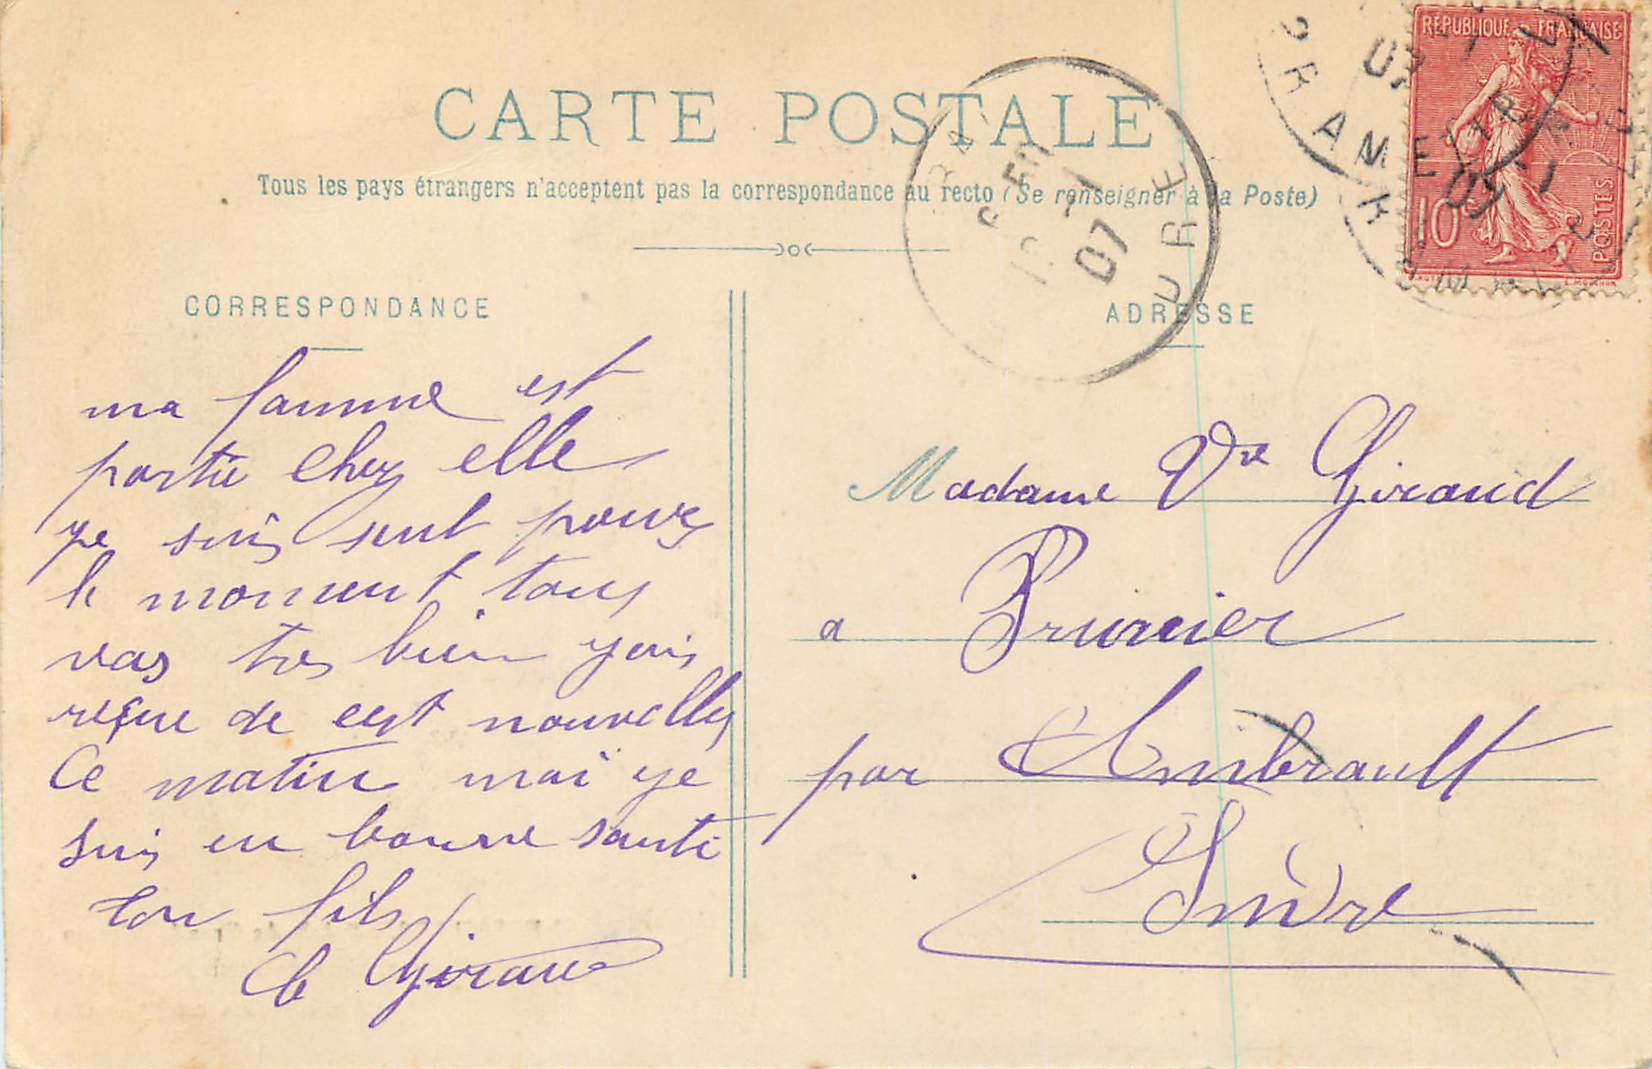 CARTE POSTALE
Tous les pays étrangers n'acceptent pas la correspondance au recto (Se renseigner à la Poste)
RÉPUBLIQUE FRANÇAISE
10
POSTES
E. MOUCHON
07
URE
07
CORRESPONDANCE
ma famme est
partie chez elle
ye suis seul pour
le moment tous
vas tres bien yais
reçue de cest nouvelles
Ce matin moi ye
suis en bonne santé
ton fils
Giraud
ADRESSE
Madame Vve Giraud
a Prunier
par Ambrault
Indre